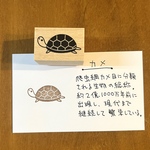 カメ
爬虫綱カメ目に分類
される生物の総称。
約2億1000万年前に
出現し、現代まで
継続して繁栄している。